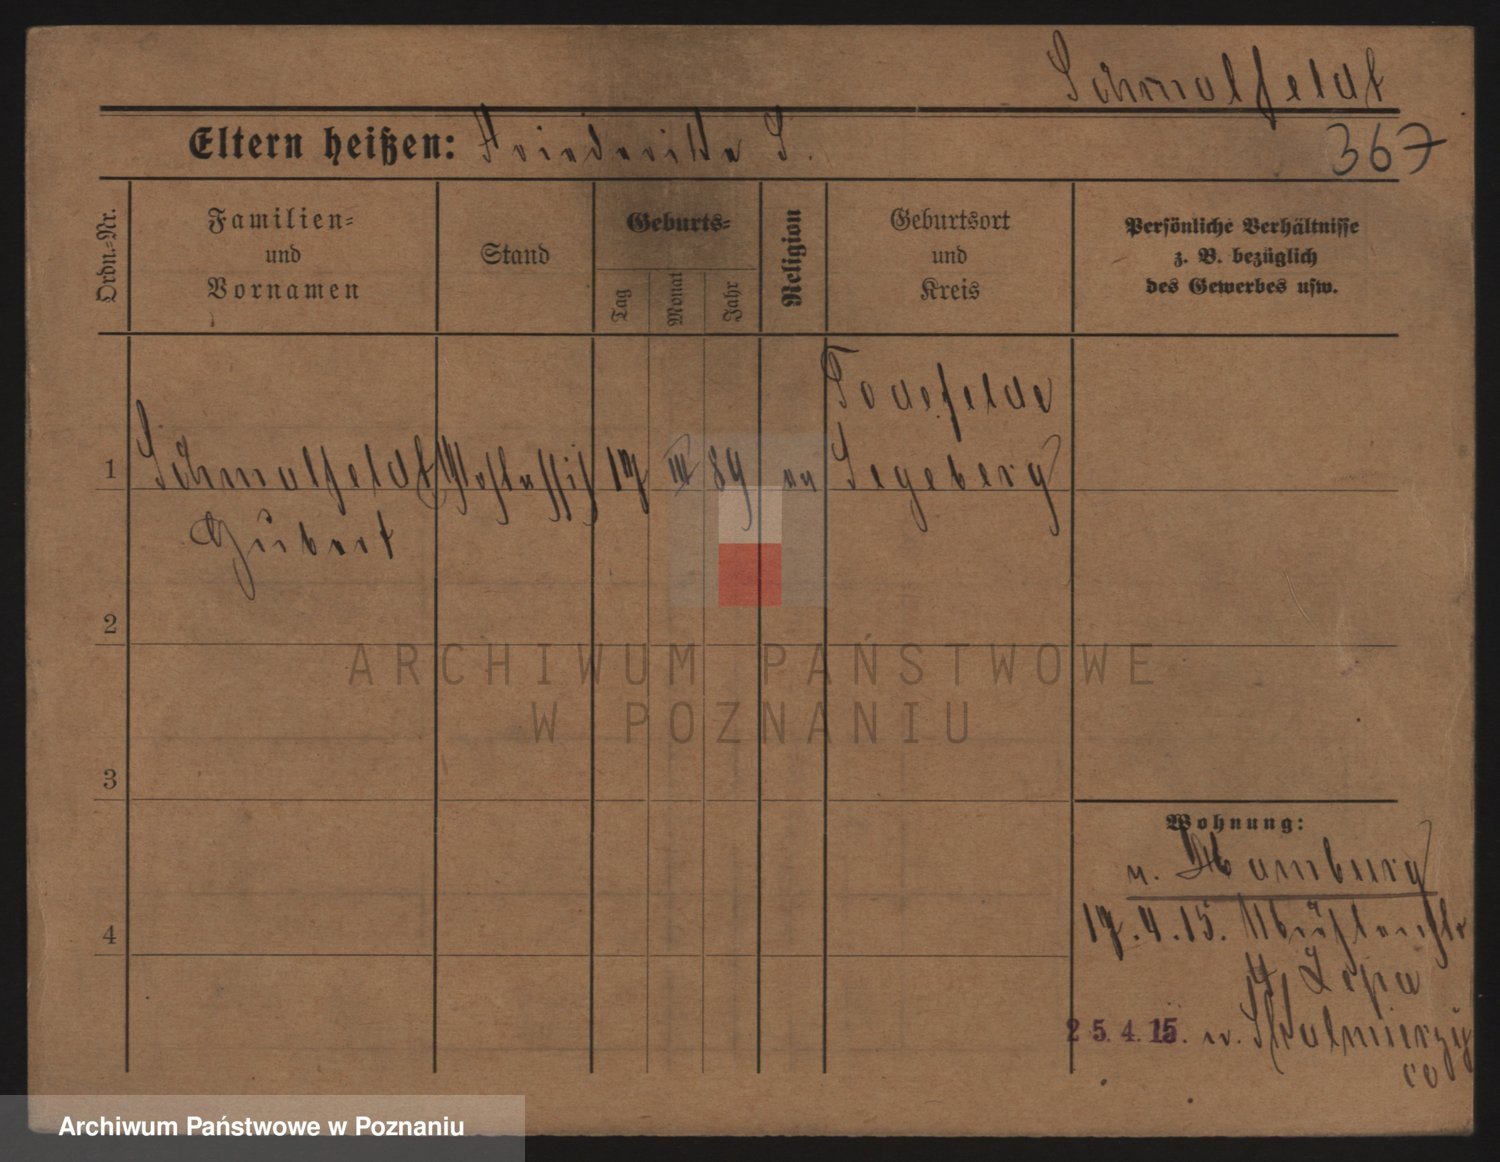 Schmalfeldt
367
Eltern heißen: Friederike S.
Ordn.-Nr.
Familien-
und
Vornamen
Stand
Geburts-
Tag
Monat
Jahr
Religion
Geburtsort
und
Kreis
Persönliche Verhältnisse
z. B. bezüglich
des Gewerbes usw.
Todesfelde
1 Schmalfeldt 17 III 89 ev Segeberg
2
3
4
Wohnung:
v. Hamburg
17.4.15. Mühlenstr
25.4.15. n. Skalmierzy
ce
ARCHIWUM PAŃSTWOWE
W POZNANIU
Archiwum Państwowe w Poznaniu